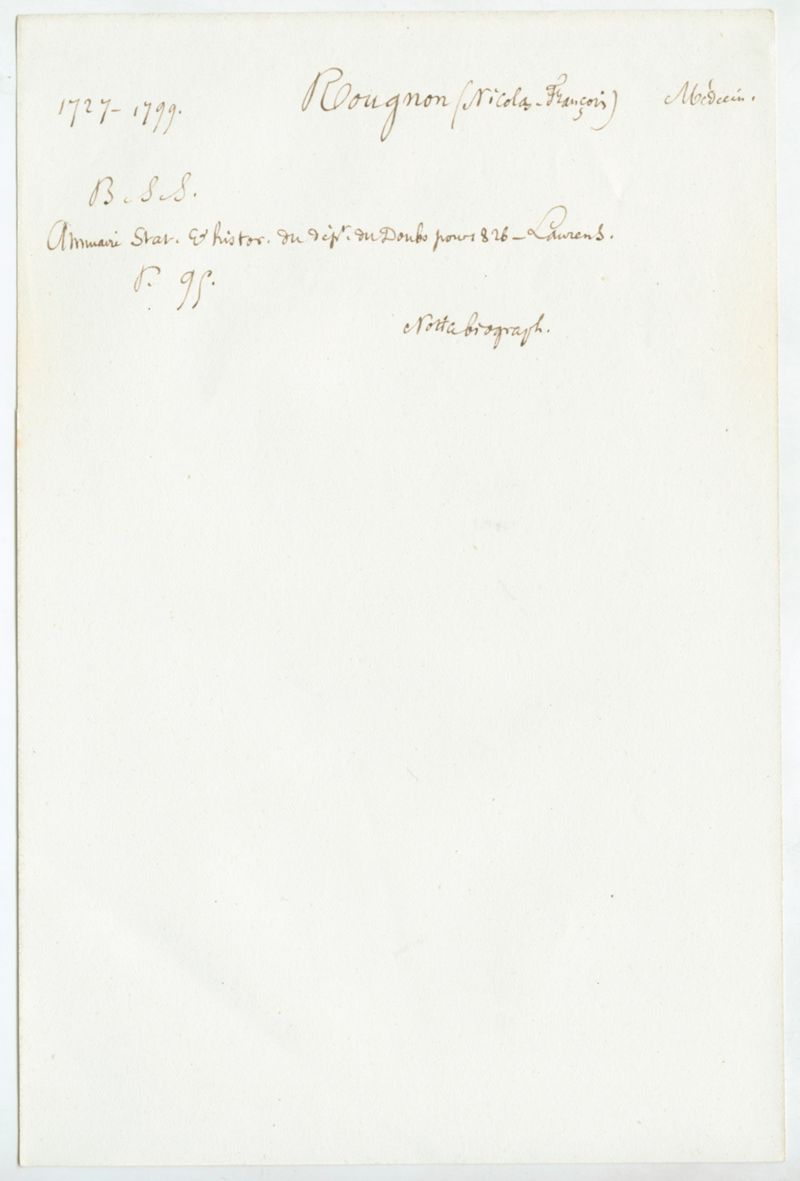 1727 - 1799. Rougnon (Nicolas-François) Médecin.
B. S. S.
Annuaire Stat. & histor. du dépt. du Doubs pour 1826 - Laurens.
P. 95.
biograph.